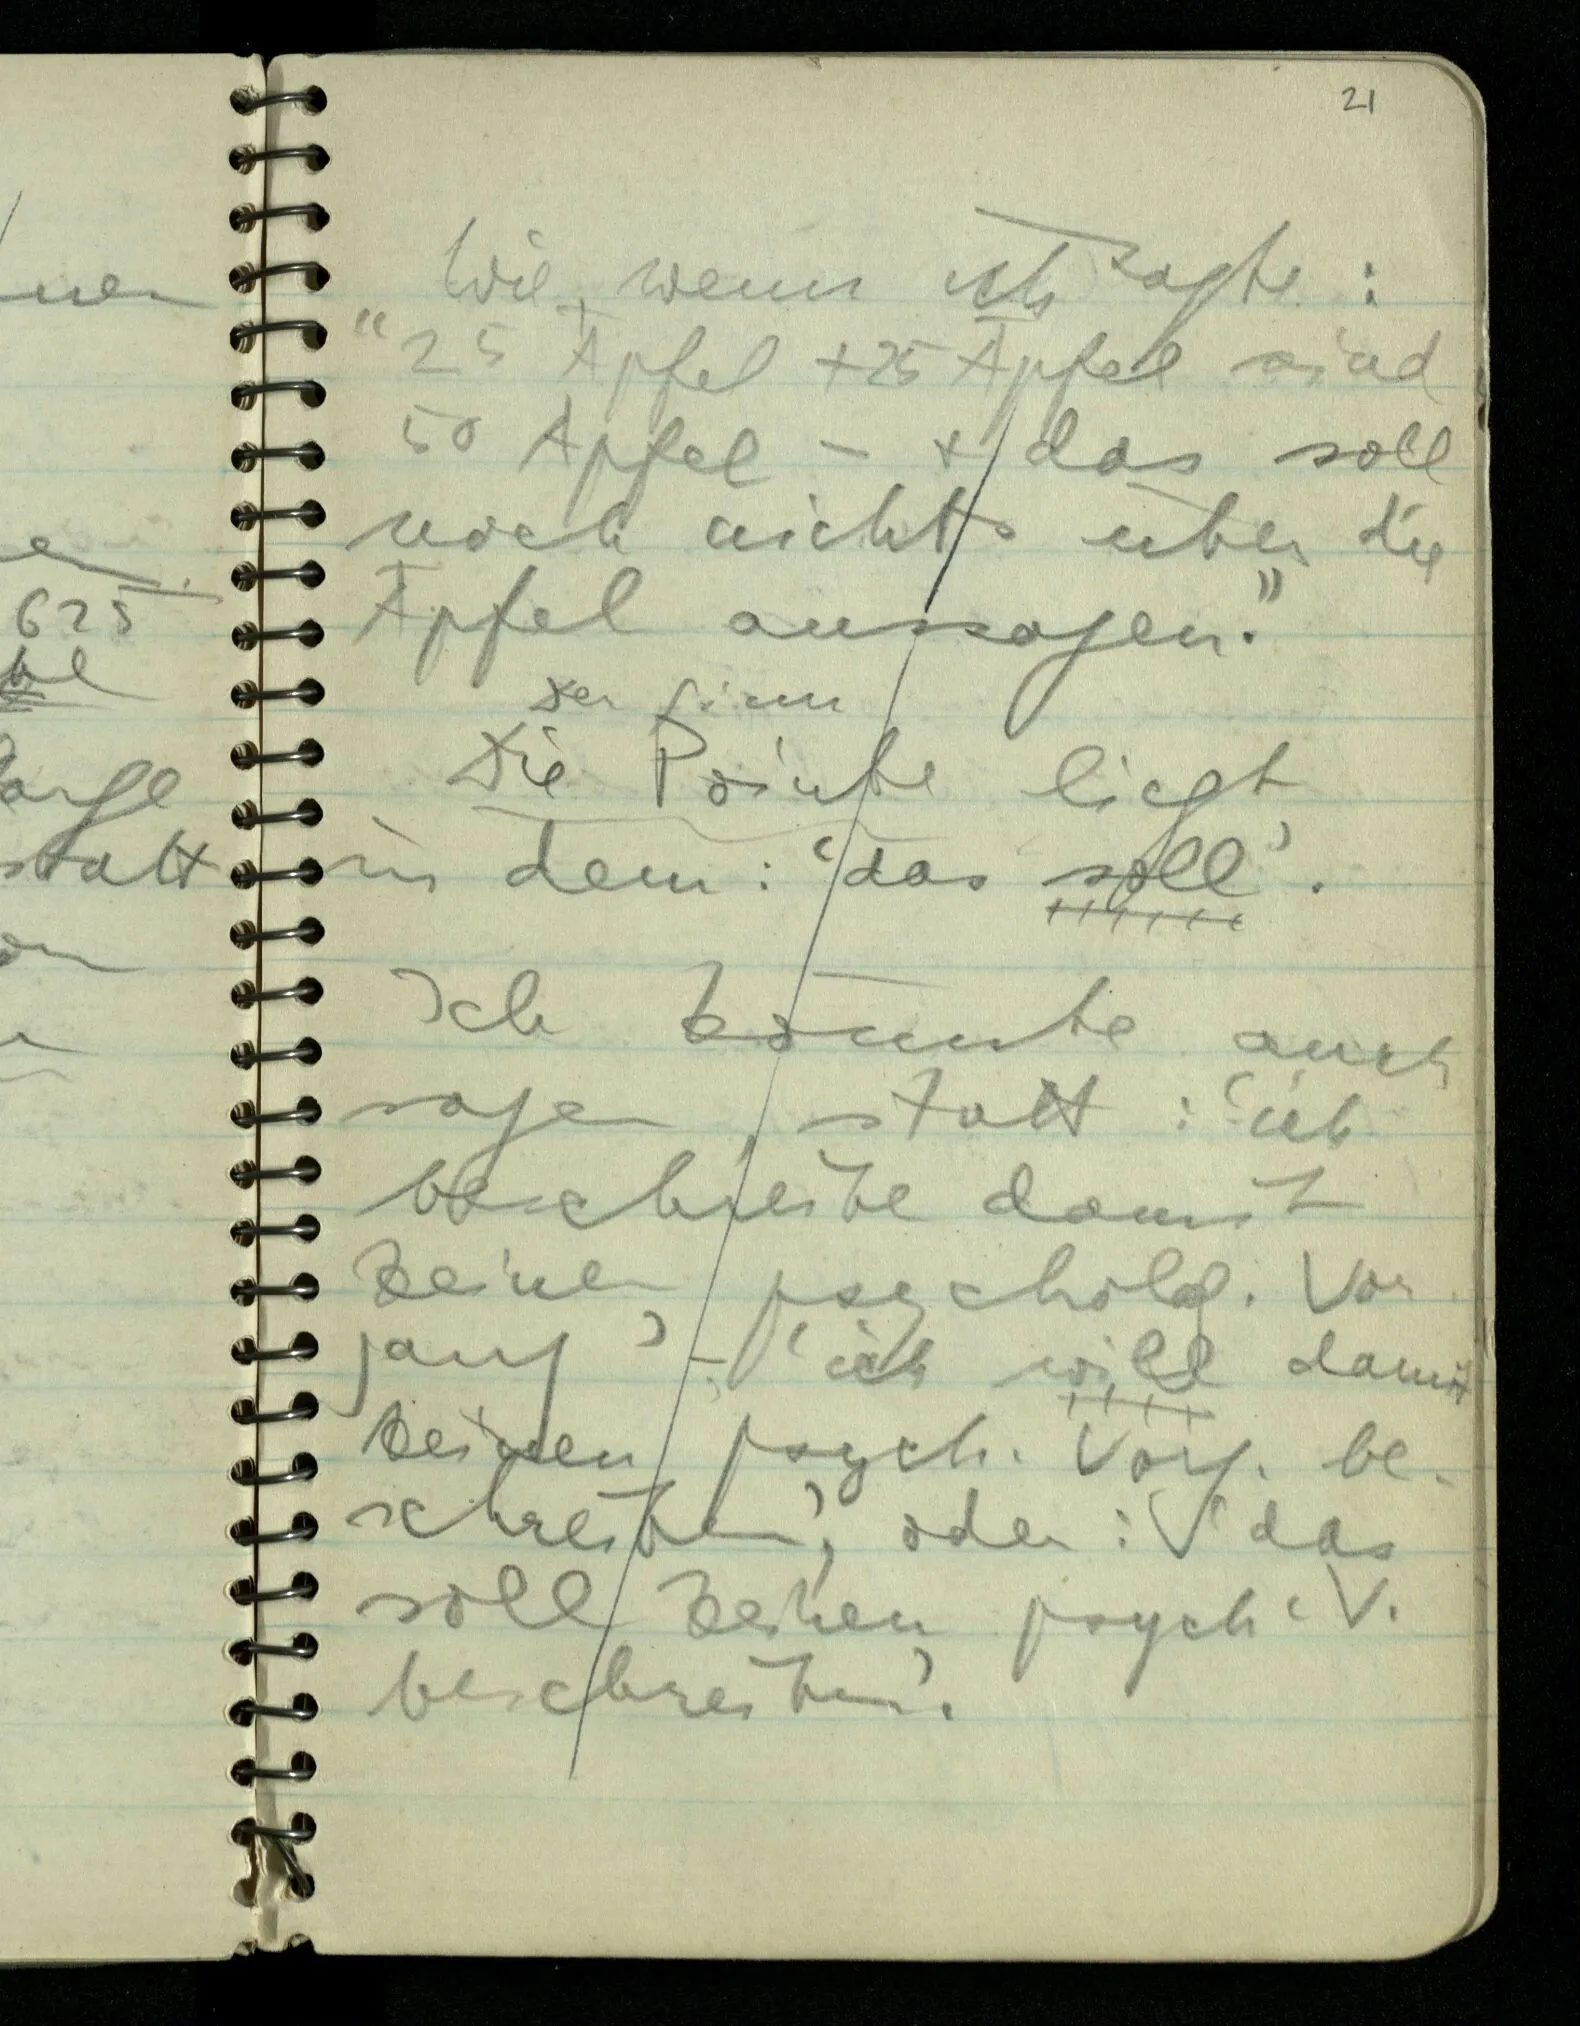 21
Wie, wenn ich sagte:
"25 Äpfel + 25 Äpfel sind
50 Äpfel – + das soll
noch nichts über die
Äpfel aussagen."
Der Sinn
Die Pointe liegt
in dem: 'das soll'.
Ich könnte auch
sagen, statt: 'ich
beschreibe damit
keinen psycholog. Vor
gang' – 'ich will damit
keinen psych. Vorg. be-
schreiben', oder: 'das
soll keinen psych. V.
beschreiben'.
nen
625
statt